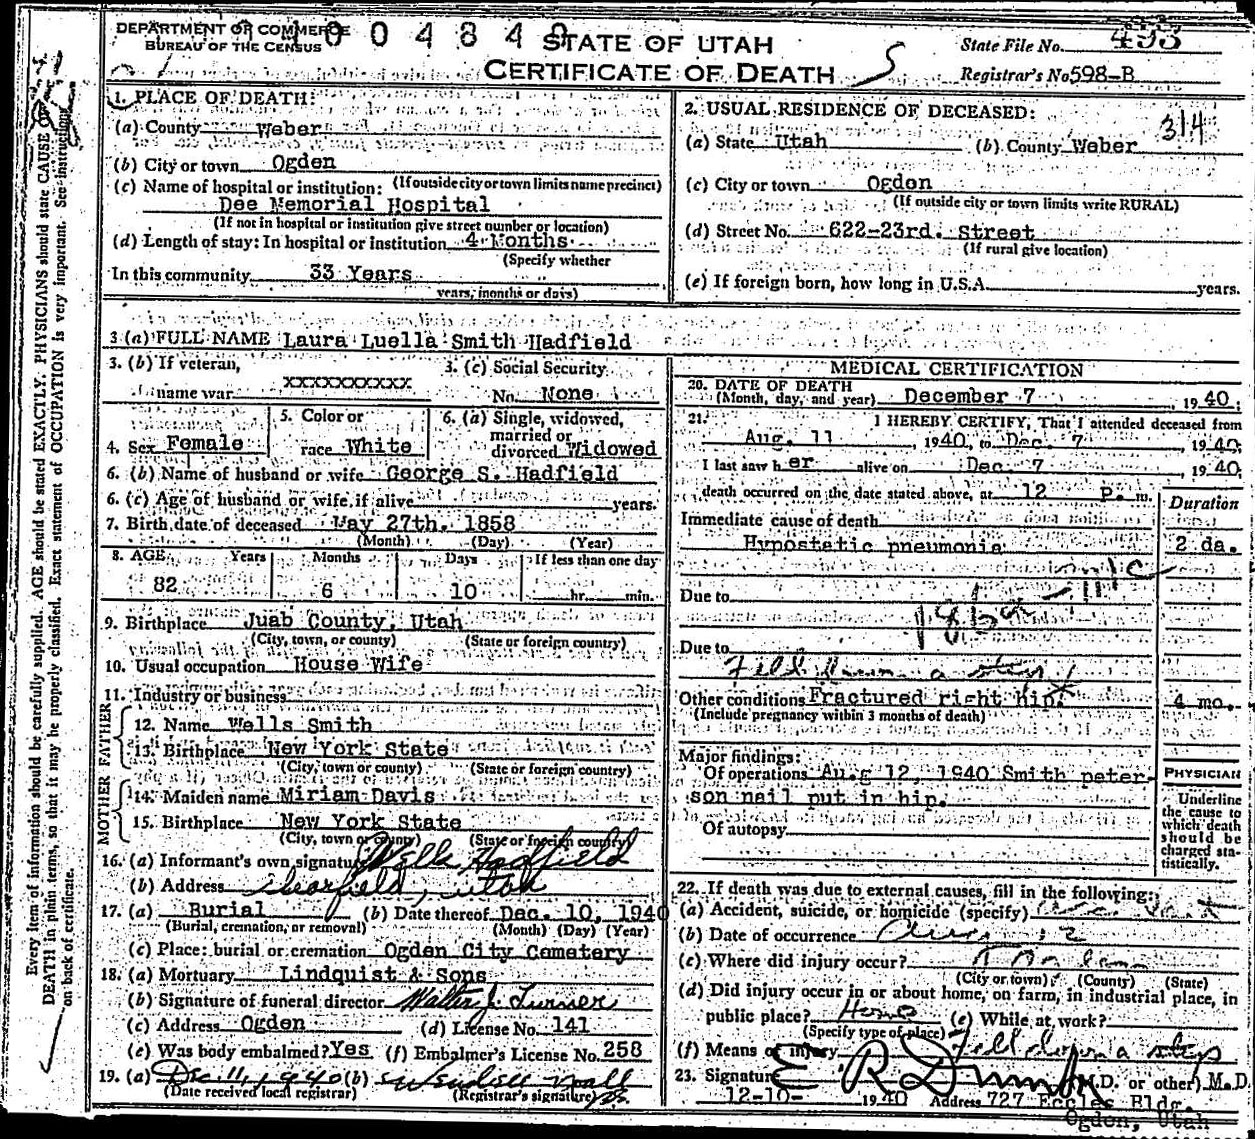 DEPARTMENT OF COMMERCE
BUREAU OF THE CENSUS
STATE OF UTAH
CERTIFICATE OF DEATH
State File No. 453
Registrar's No 598-B
1. PLACE OF DEATH:
(a) County Weber
(b) City or town Ogden
(If outside city or town limits name precinct)
(c) Name of hospital or institution:
Dee Memorial Hospital
(If not in hospital or institution give street number or location)
(d) Length of stay: In hospital or institution 4 Months
(Specify whether
In this community 33 Years
years, months or days)
2. USUAL RESIDENCE OF DECEASED:
314
(a) State Utah (b) County Weber
(c) City or town Ogden
(If outside city or town limits write RURAL)
(d) Street No. 622-23rd. Street
(If rural give location)
(e) If foreign born, how long in U.S.A. years.
3 (a) FULL NAME Laura Luella Smith Hadfield
3. (b) If veteran,
name war xxxxxxxxxx
3. (c) Social Security
No. None
4. Sex Female
5. Color or
race White
6. (a) Single, widowed,
married or
divorced Widowed
6. (b) Name of husband or wife George S. Hadfield
6. (c) Age of husband or wife if alive years.
7. Birth date of deceased May 27th. 1858
(Month) (Day) (Year)
8. AGE Years Months Days If less than one day
82 6 10 hr. min.
9. Birthplace Juab County, Utah
(City, town, or county) (State or foreign country)
10. Usual occupation House Wife
11. Industry or business
FATHER
12. Name Wells Smith
13. Birthplace New York State
(City, town or county) (State or foreign country)
MOTHER
14. Maiden name Miriam Davis
15. Birthplace New York State
(City, town or county) (State or foreign country)
16. (a) Informant's own signature Wells Hadfield
(b) Address Clearfield, Utah
17. (a) Burial (b) Date thereof Dec. 10, 1940
(Burial, cremation, or removal) (Month) (Day) (Year)
(c) Place: burial or cremation Ogden City Cemetery
18. (a) Mortuary Lindquist & Sons
(b) Signature of funeral director Walter J. Turner
(c) Address Ogden (d) License No. 141
(e) Was body embalmed? Yes (f) Embalmer's License No. 258
19. (a) Dec. 11, 1940 (b)
(Date received local registrar) (Registrar's signature)
MEDICAL CERTIFICATION
20. DATE OF DEATH
(Month, day, and year) December 7, 1940;
21. I HEREBY CERTIFY, That I attended deceased from
Aug. 11, 1940, to Dec. 7 1940;
I last saw her alive on Dec. 7 1940
death occurred on the date stated above, at 12 P. m.
Duration
Immediate cause of death
Hypostatic pneumonia 2 da.
Due to
Due to
Fell down a step
Other conditions Fractured right hip. 4 mo.
(Include pregnancy within 3 months of death)
Major findings:
Of operations Aug 12, 1940 Smith peter-
son nail put in hip.
Of autopsy
PHYSICIAN
Underline
the cause to
which death
should be
charged sta-
tistically.
22. If death was due to external causes, fill in the following:
(a) Accident, suicide, or homicide (specify)
(b) Date of occurrence
(c) Where did injury occur?
(City or town) (County) (State)
(d) Did injury occur in or about home, on farm, in industrial place, in
public place? Home (e) While at work?
(Specify type of place)
(f) Means of injury Fell down a step
23. Signature (M.D. or other) M.D
12-10- 1940 Address 727 Eccles Bldg.
Ogden, Utah
Every item of information should be carefully supplied. AGE should be stated EXACTLY. PHYSICIANS should state CAUSE OF
DEATH in plain terms, so that it may be properly classified. Exact statement of OCCUPATION is very important. See instructions
on back of certificate.